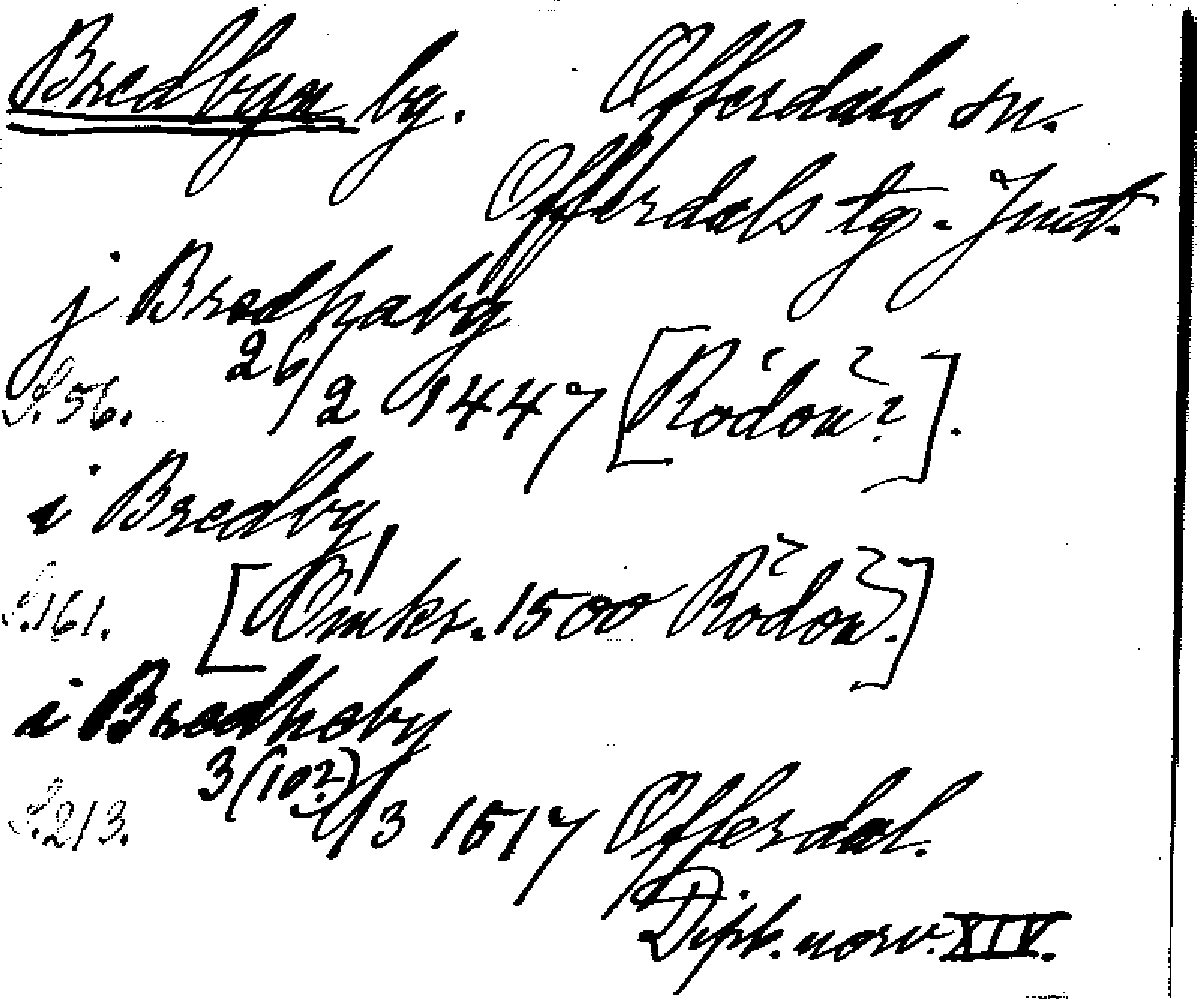 Bredbyn by. Offerdals sn.
Offerdals tg. Jmt.
j Bredhaby
S. 56. 26/2 1447 [Rödön?].
i Bredby
S. 161. [Omkr. 1500 Rödön.]
i Bredheby
S. 213. 3(10?)/3 1517 Offerdal.
Dipl. norv. XIV.